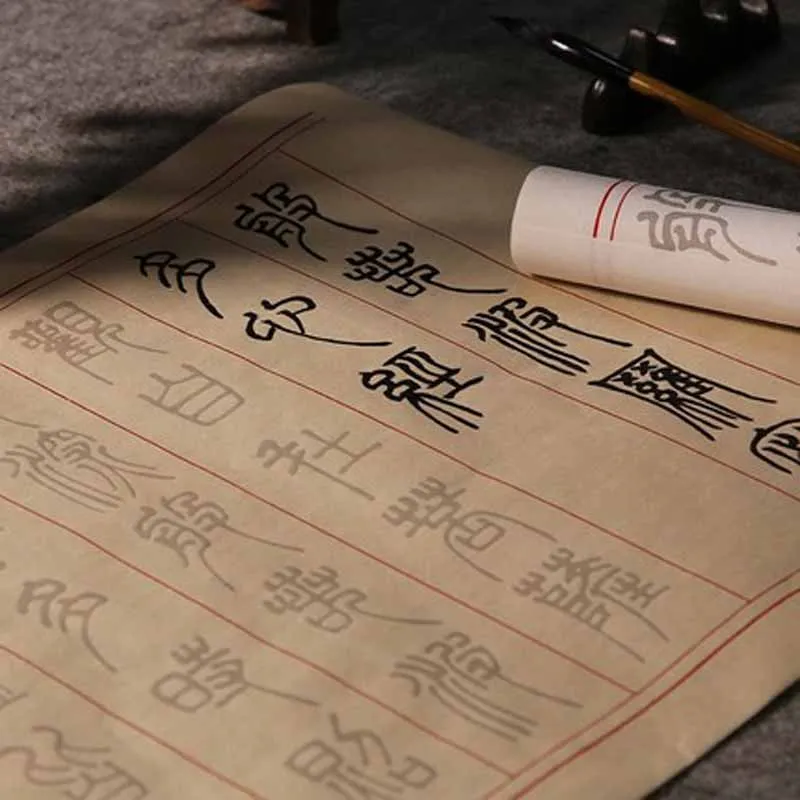 般若波羅
多心經
觀自在菩薩
深般若波
多時照
般